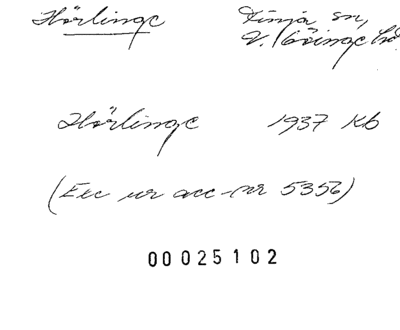 Hörlinge Finja sn,
V. Göinge hd.
Hörlinge 1937 Kb
(Exc ur acc-nr 5356)
00025102